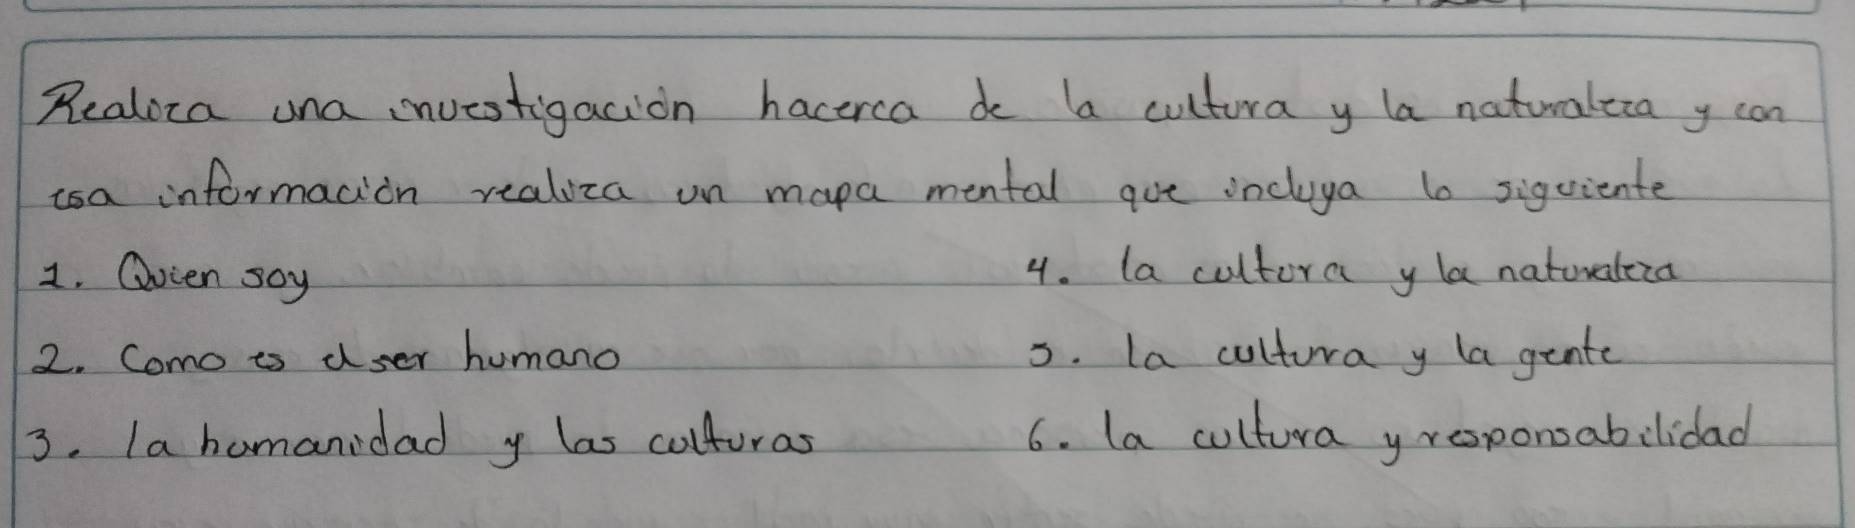 Realiza una investigación hacerca de la cultura y la naturaleza y con
esa información realiza un mapa mental que incluya lo siguiente
1. Quien soy
4. la cultura y la naturaleza
2. Como es el ser humano
5. la cultura y la gente
3. la humanidad y las culturas
6. la cultura y responsabilidad